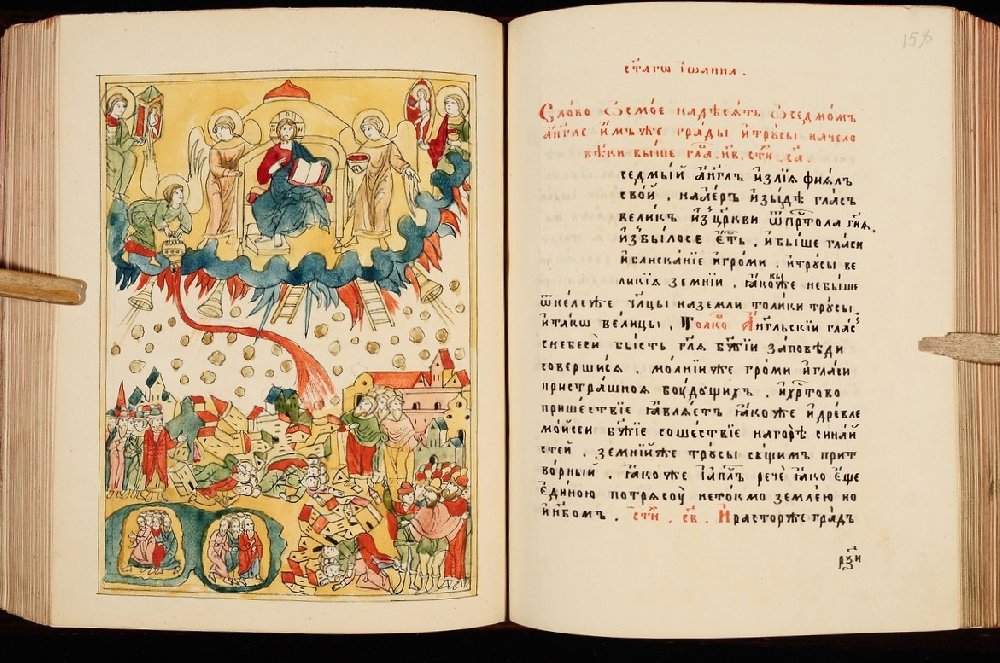 158
ст҃агѡ іѡанна .
Слово ѻсмоѐ надесѧть ѻседмомъ
а҆гг҃лѣ и҆мъже гра́ды и҆трꙋсы начело
вѣки выше гл҃а . и҆в . сти҃ . за҃ .
седмы́й а҆гг҃лъ и҆злїѧ̀ фїа́лъ
свой . нае́ръ и҆зы́де гла́съ
великъ и҆зц҃ркви ѿпр҃тола гн҃ѧ .
и҆збы́лосе є҆́сть . и҆бы́ше гла́си
и҆блиска́нїе и҆гро́ми . и҆трꙋсы ве
ликїѧ земні́и . ꙗ҆ковы́же небыше
ѿнележе чл҃цы наземли толи́ки трꙋ́сы ,
и҆та́кѡ вели́цы , То́лкъ А҆́гг҃льскїи гла́съ
снебеси бы́сть гл҃ѧ бж҃їи за́повѣди
совершисѧ . мо́лнїиже гро́ми и҆гла́си
пристра́шноѧ бꙋ́дꙋщихъ . и҆хр҃тово
прише́ствїе ꙗ҆влѧ́етъ ꙗ҆коже и҆дре́вле
мѡ́йсеи бж҃їе соше́ствїе нагорѣ̀ сина́й
стей . земні́иже трꙋсы сꙋщимъ прит
во́рный . ꙗ҆коже и҆а҆п҃лъ речѐ ꙗ҆ко є҆ще
є҆ди́ною потрѧсꙋ̀ нетокмо землею но
и҆нб҃омъ . сти҃ . св҃ . И҆расторже гра́дъ
рꙋзи